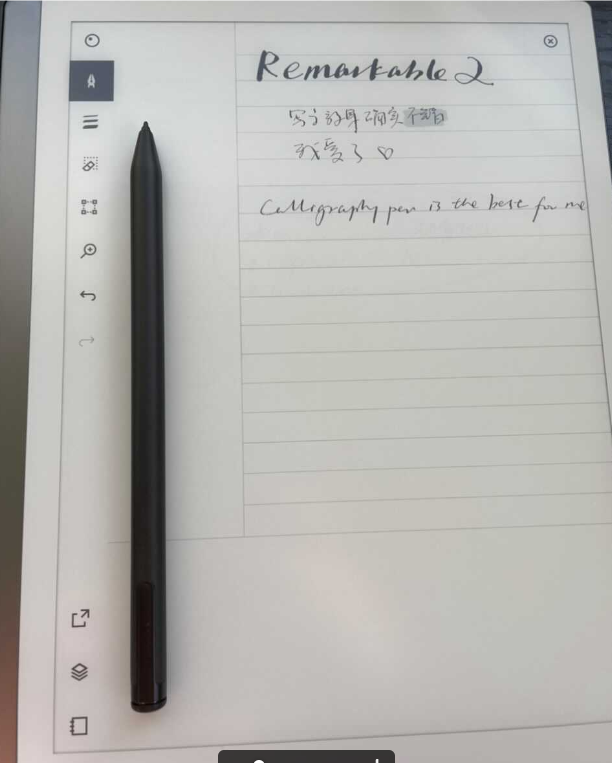 Remarkable 2
写字效果确实不错
我爱了♡
Calligraphy pen is the best for me